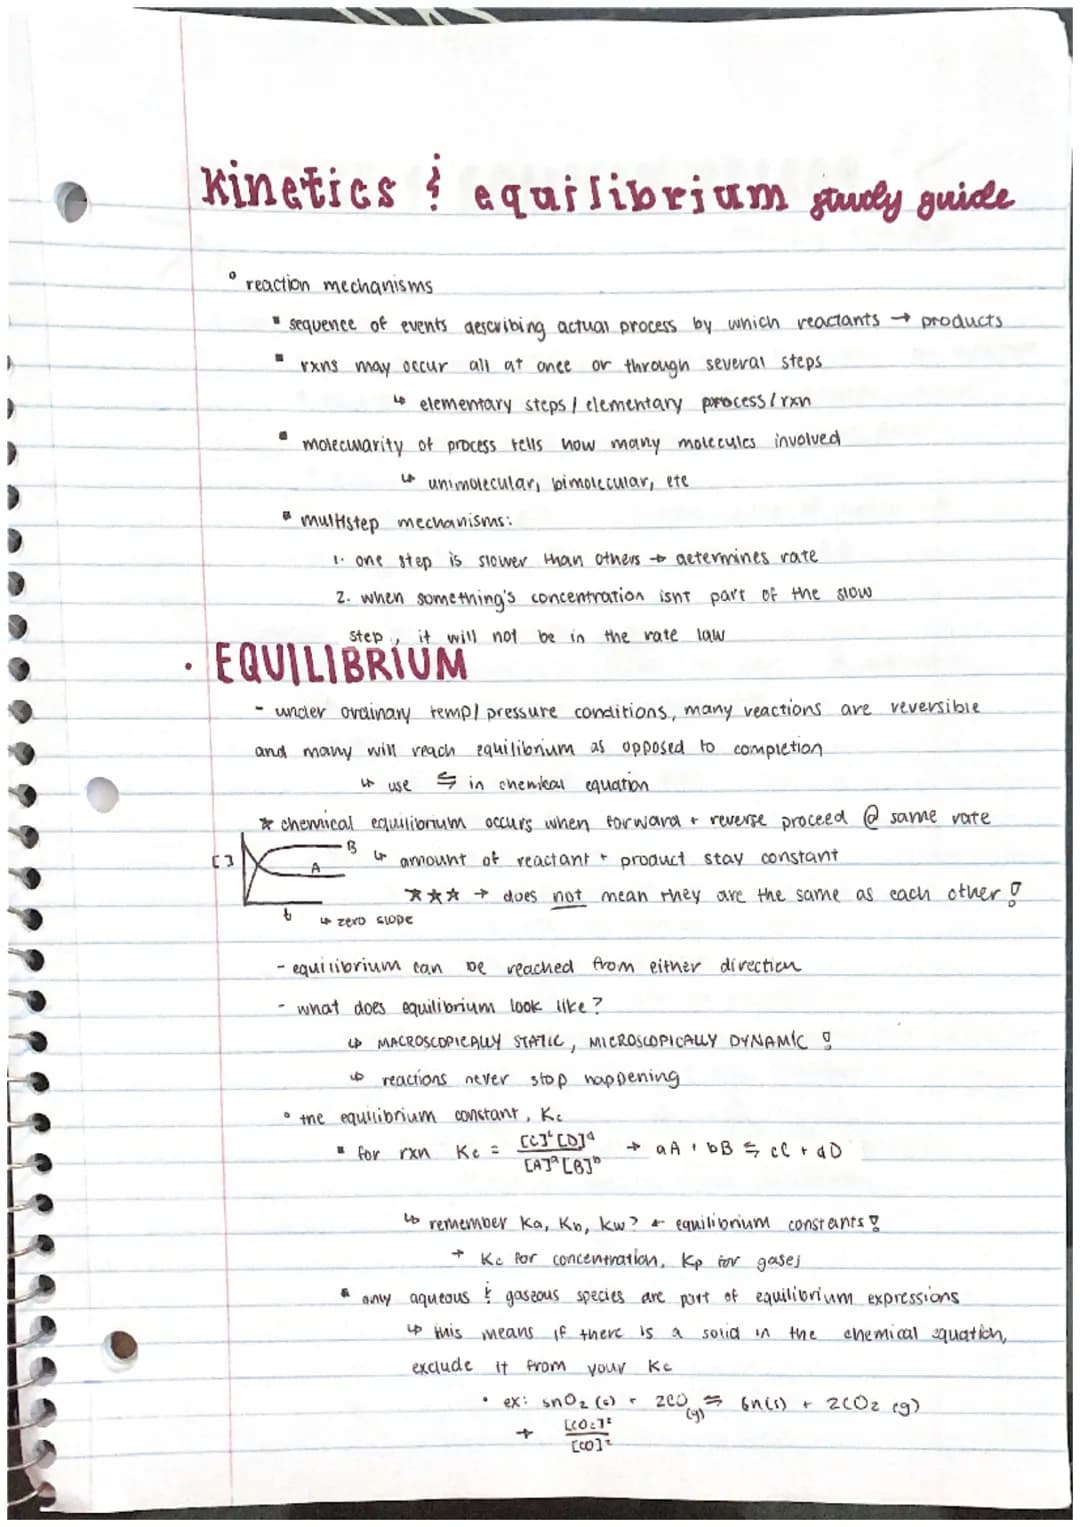 Kinetics & equilibrium study guide
° reaction mechanisms
▪ sequence of events describing actual process by which reactants → products
▪ rxns may occur all at once or through several steps
↳ elementary steps / elementary process / rxn
▪ molecularity of process tells how many molecules involved
↳ unimolecular, bimolecular, etc
▪ multistep mechanisms:
1. one step is slower than others → determines rate
2. when something's concentration isnt part of the slow
step, it will not be in the rate law
· EQUILIBRIUM
- under ordinary temp/ pressure conditions, many reactions are reversible
and many will reach equilibrium as opposed to completion
↳ use ⇆ in chemical equation
★ chemical equilibrium occurs when forward + reverse proceed @ same rate
[ ] A B t
↳ amount of reactant + product stay constant
★★★ → does not mean they are the same as each other!
↳ zero slope
- equilibrium can be reached from either direction
- what does equilibrium look like?
↳ MACROSCOPICALLY STATIC, MICROSCOPICALLY DYNAMIC!
↳ reactions never stop happening
° the equilibrium constant, Kc
▪ for rxn Kc = [C]ᶜ[D]ᵈ / [A]ᵃ[B]ᵇ → aA + bB ⇆ cC + dD
↳ remember Ka, Kb, Kw? ← equilibrium constants!
→ Kc for concentration, Kp for gases
▪ only aqueous & gaseous species are part of equilibrium expressions
↳ this means if there is a solid in the chemical equation,
exclude it from your Kc
• ex: SnO₂ (s) + 2CO (g) ⇆ Sn(s) + 2CO₂ (g)
→ [CO₂]² / [CO]²